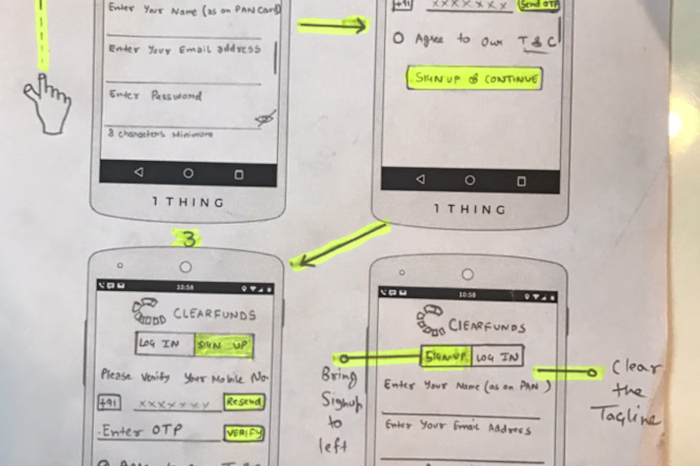 Enter Your Name (as on PAN Card)
Enter Your Email address
Enter Password
8 characters Minimum
1 THING
+91 XXXXXXX Send OTP
Agree to Our T & C
SIGN UP & CONTINUE
1 THING
3
10:58
CLEARFUNDS
LOG IN SIGN UP
Please Verify Your Mobile No.
+91 XXXXXXX Resend
Enter OTP VERIFY
10:58
CLEARFUNDS
SIGNUP LOG IN
Enter Your Name (as on PAN)
Enter Your Email Address
Bring
Signup
to
left
Clear
the
Tagline